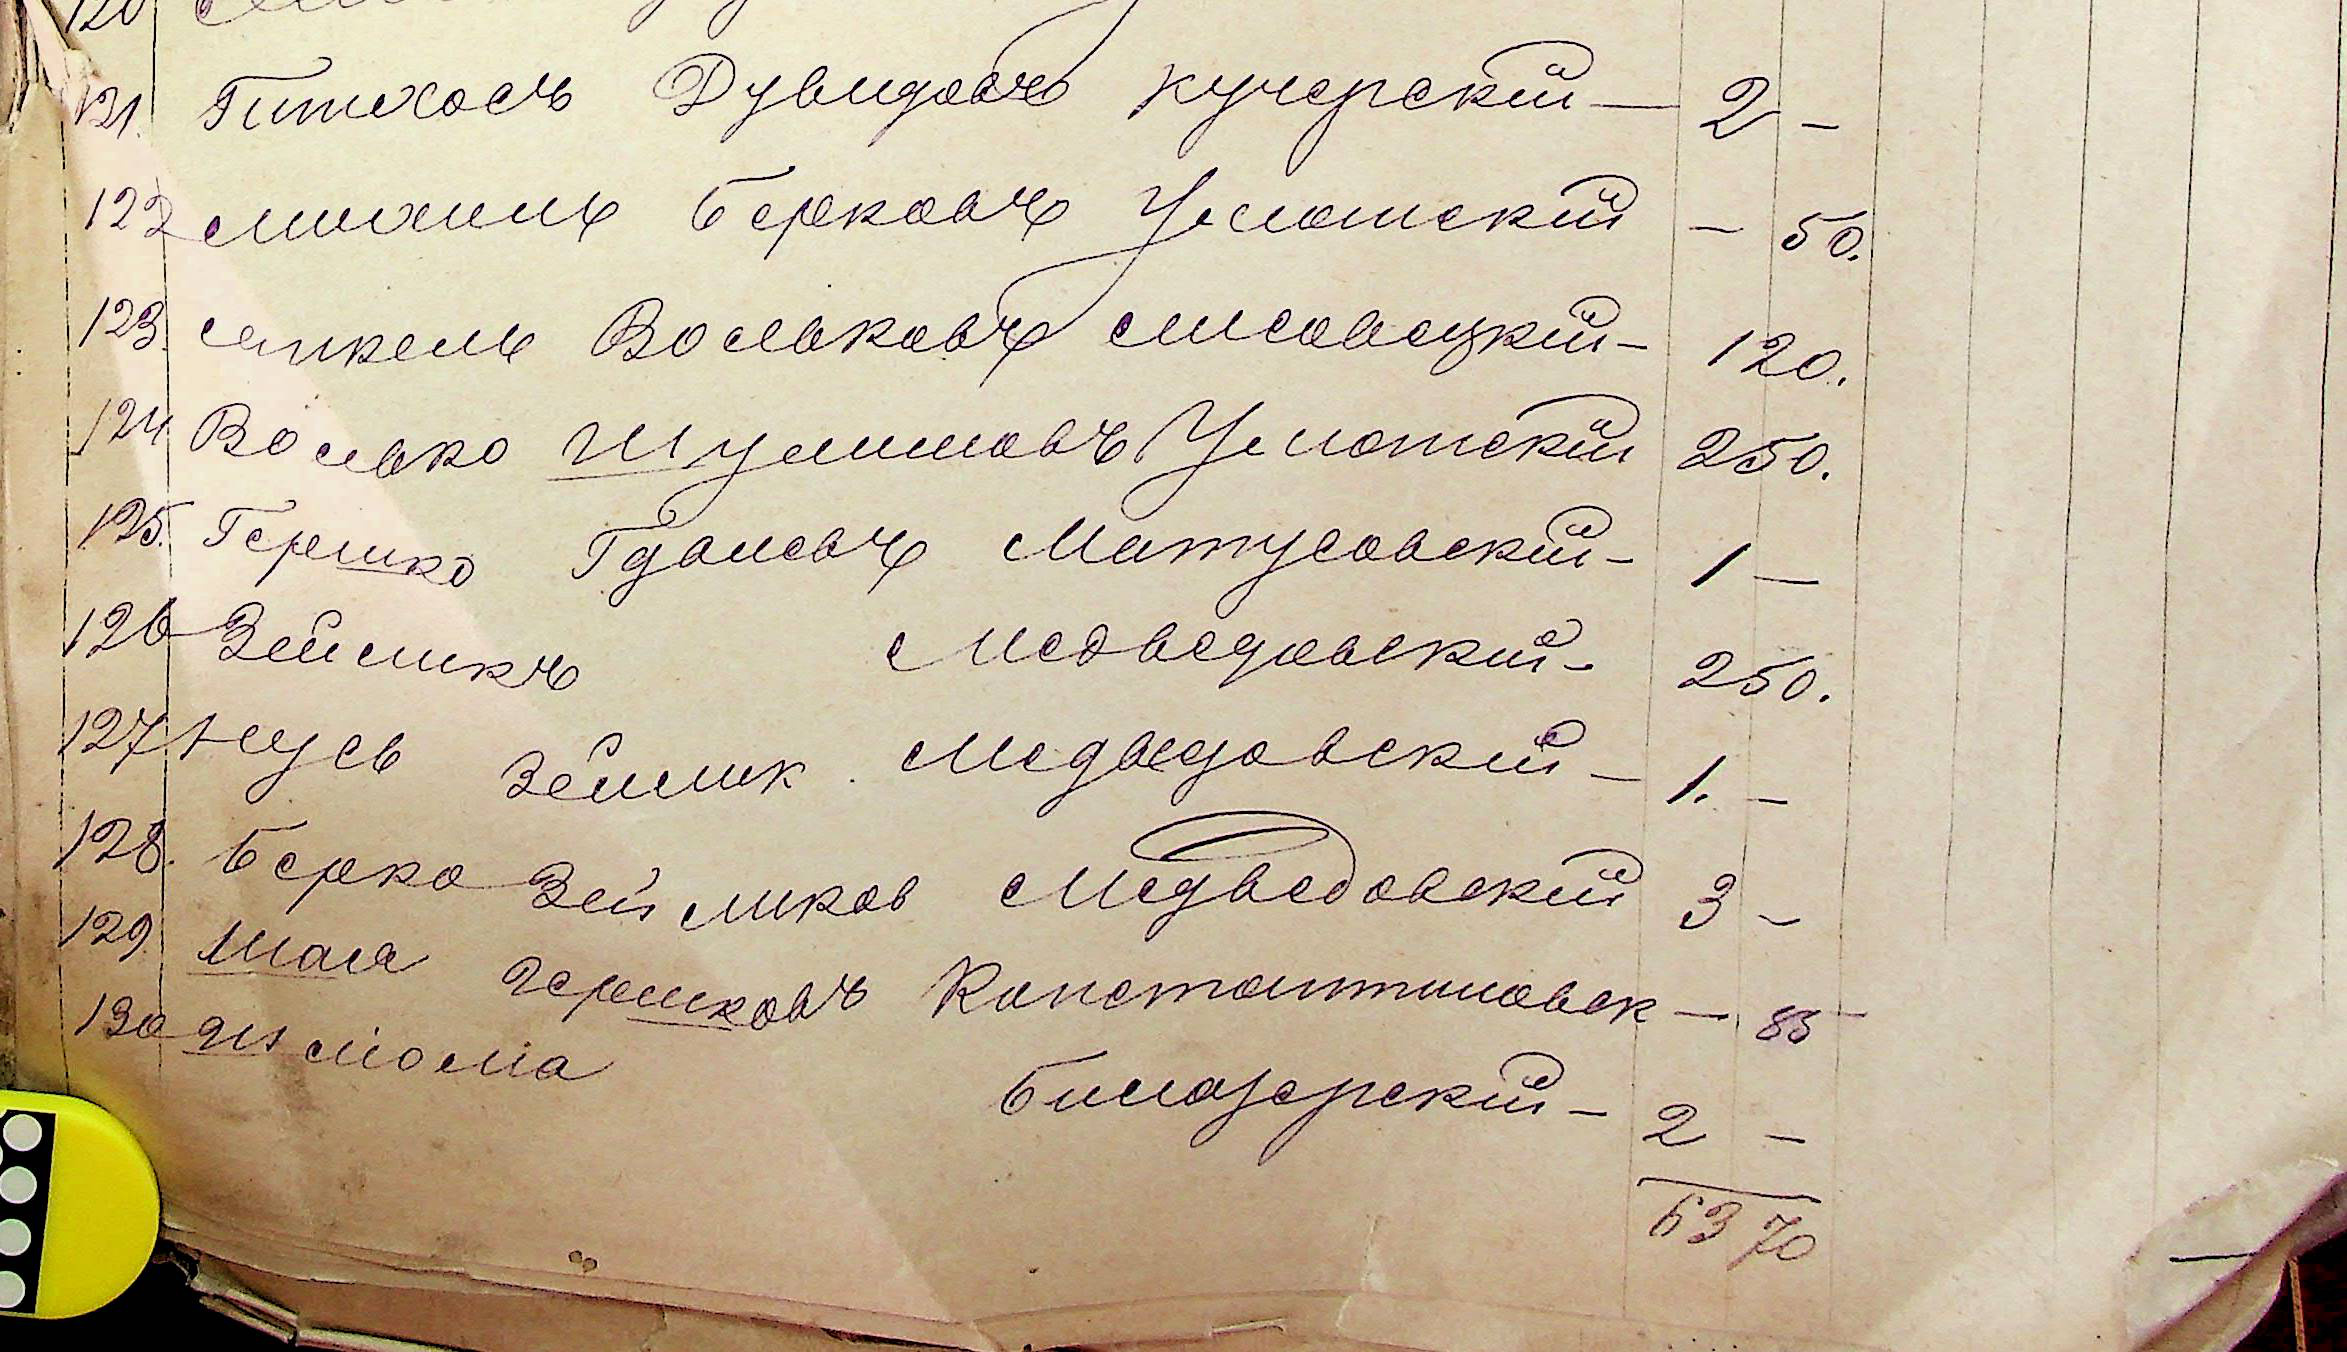 120
121. Пинхосъ Дувидовъ Кучерскій — 2 —
122 Михиль Берковъ Уманскій — 50.
123. Янкель Вольковъ Лисовецкій — 1 20.
124 Волько Шулимовъ Уманскій 2 50.
125. Гершко Гдалевъ Матусовскій — 1 —
126 Зейликъ Медведовскій — 2 50.
127 Нусь Зейлик Медведовскій — 1. —
128. Берко Зейликов Медведовскій 3 —
129. Шая Гершковъ Константиновск — 85
130 Шлема Билазерскій — 2 —
63 70